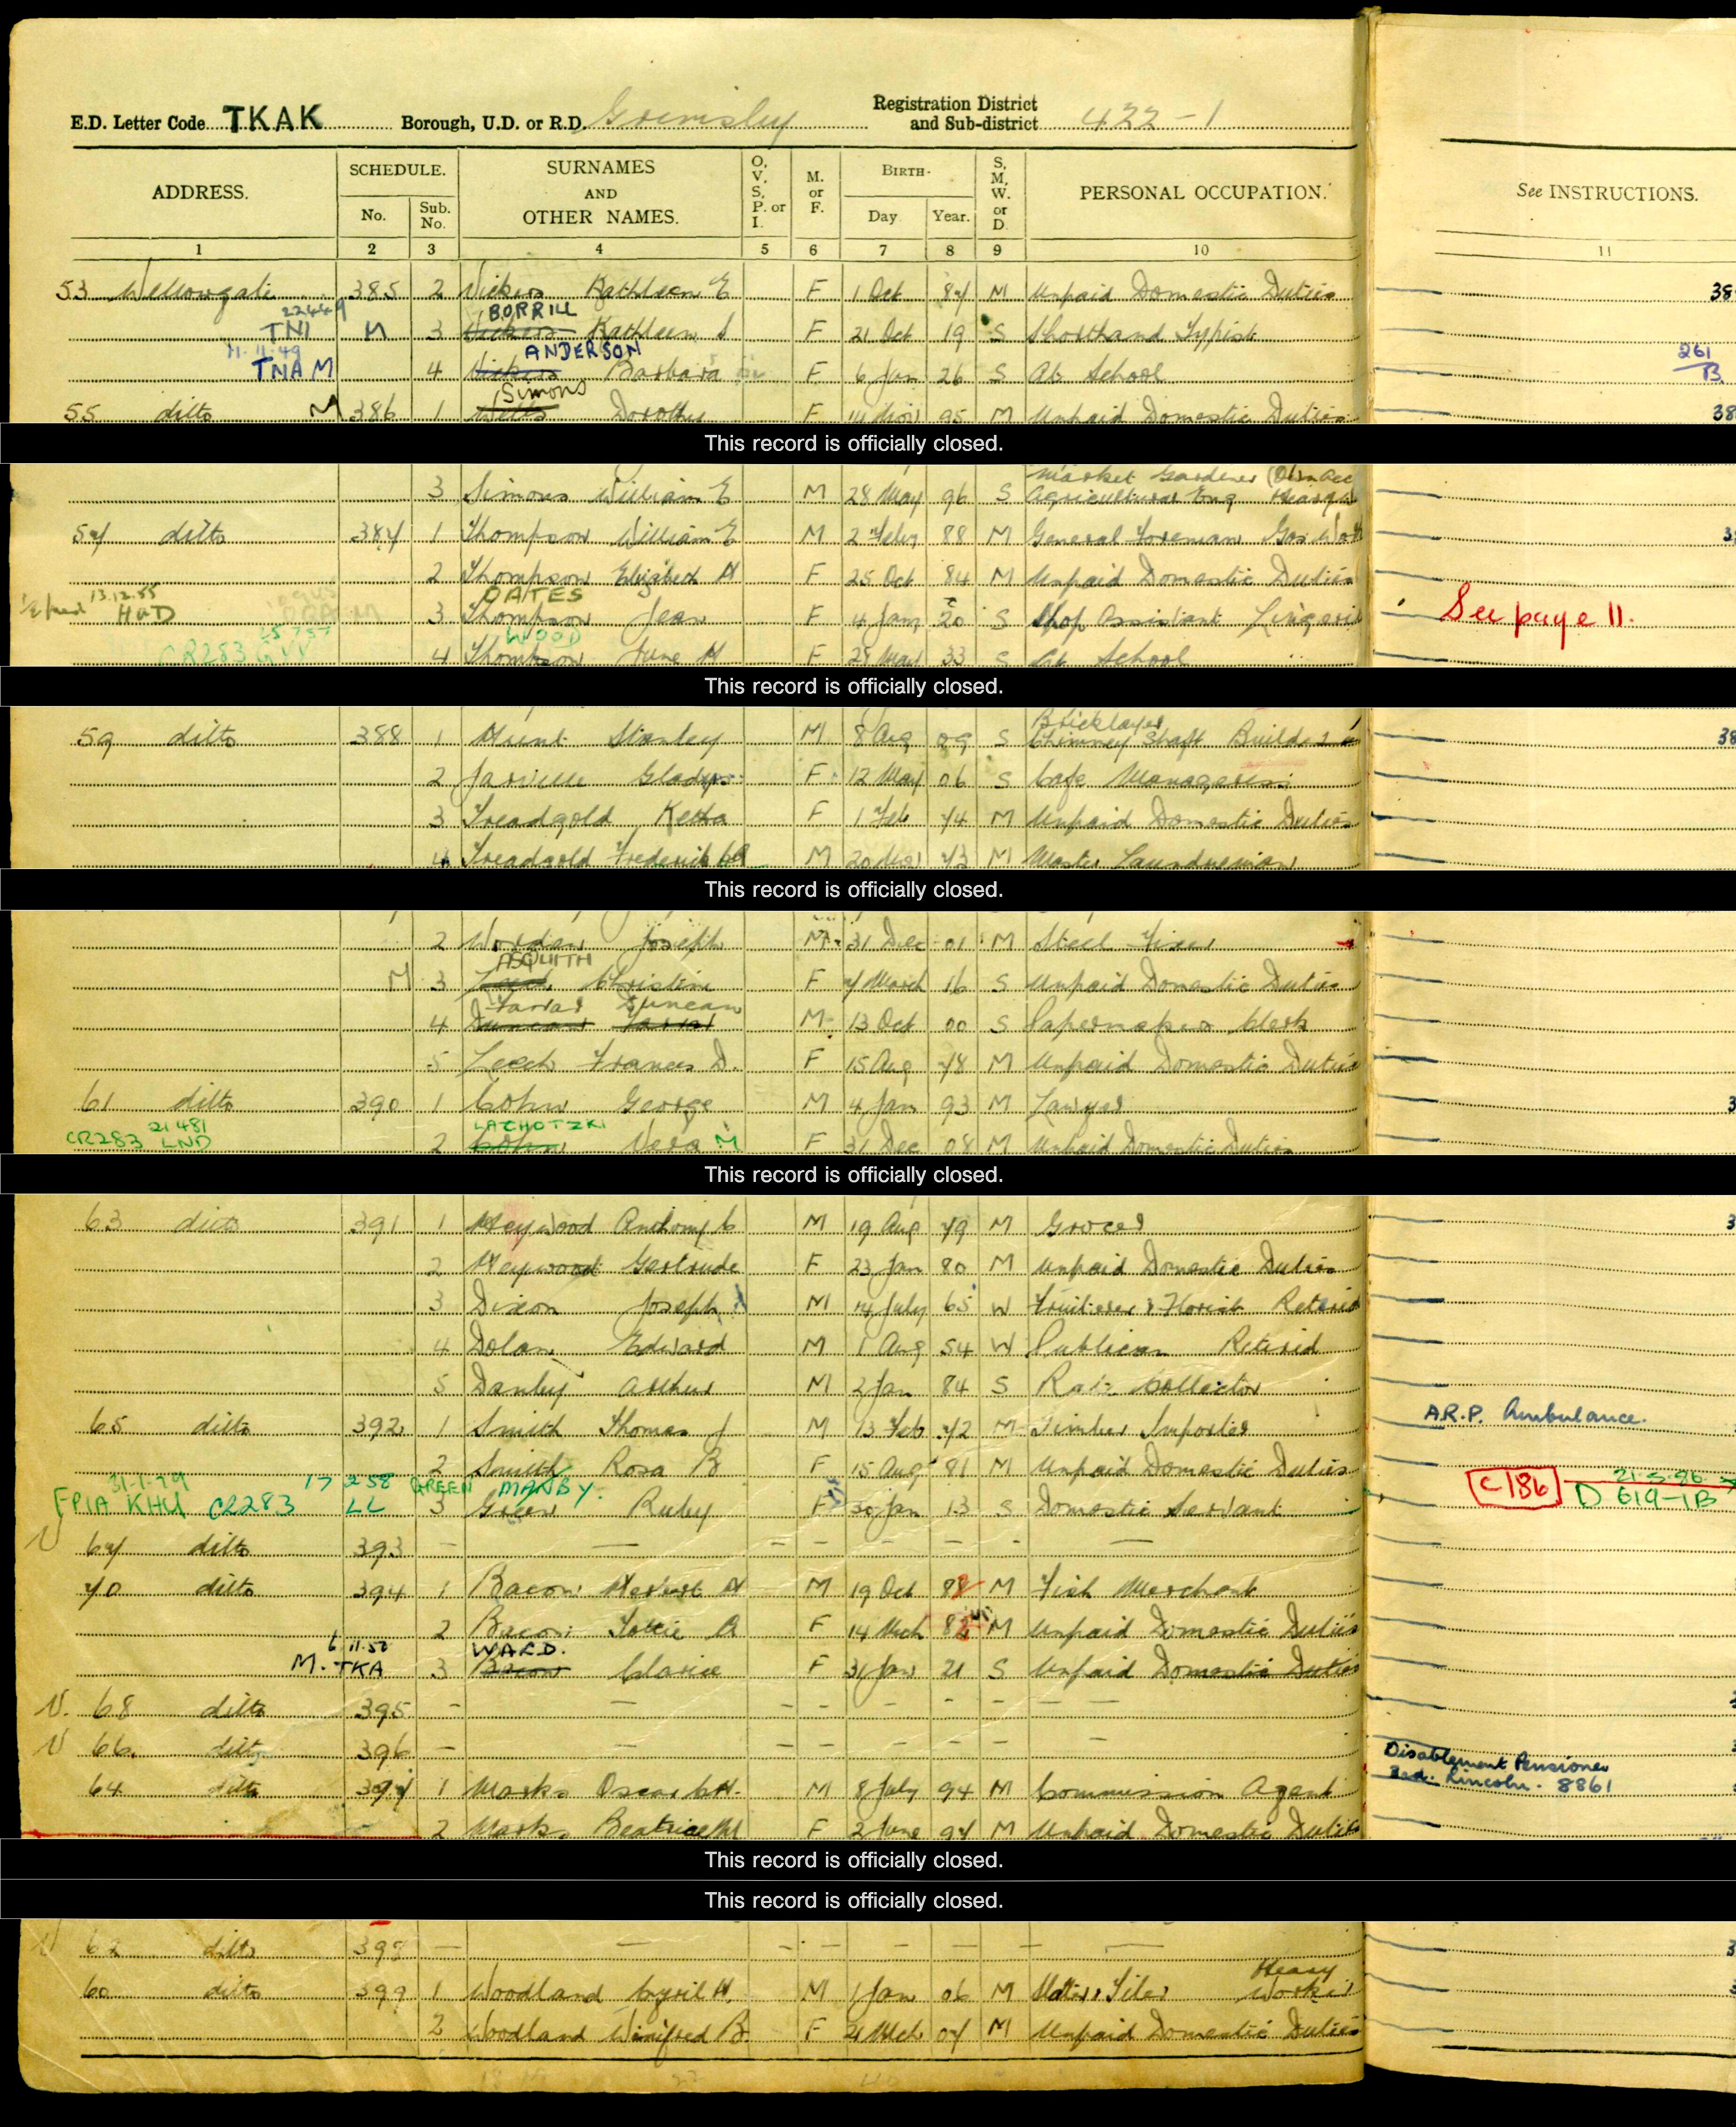 E.D. Letter Code TKAK Borough, U.D. or R.D. Grimsby Registration District and Sub-district 422-1
ADDRESS. SCHEDULE. No. Sub. No. SURNAMES AND OTHER NAMES. O, V, S, P. or I. M. or F. BIRTH- Day Year. S, M, W, or D. PERSONAL OCCUPATION. See INSTRUCTIONS.
1 2 3 4 5 6 7 8 9 10 11
53 Wellowgate 385 2 Vickers Kathleen E F 1 Oct 87 M Unpaid Domestic Duties 38
22449 BORRILL
TNI M 3 Vickers Kathleen F 21 Oct 19 S Shorthand Typist
11.11.49 ANDERSON 261
TNA M 4 Vickers Barbara F 6 Jan 26 S At School B
Simons
55 ditto M 386 1 Dorothy F 14 Nov 95 M Unpaid Domestic Duties 38
This record is officially closed.
Market Gardener
3 Simons William E M 28 May 96 S Agricultural Eng
57 ditto 387 1 Thompson William E M 2 Feby 88 M General Foreman Gas Works 3
2 Thompson Elizabeth A F 25 Oct 84 M Unpaid Domestic Duties
13.12.55 OATES
HUD 3 Thompson Jean F 4 Jan 20 S Shop Assistant Lingerie See page 11.
WOOD
CR283 4 Thompson June H F 29 May 33 S At School
This record is officially closed.
Bricklayer
59 ditto 388 1 Hunt Stanley M 8 Aug 09 S Chimney Shaft Builder 38
2 Jarville Gladys F 12 May 06 S Cafe Manageress
3 Treadgold Ketha F 1 Feb 74 M Unpaid Domestic Duties
4 Treadgold Frederick M 20 73 M Master Laundryman
This record is officially closed.
2 Worden Joseph M 31 Dec 01 M Steel Fixer
ASQUITH
M 3 Leech Christine F 7 March 16 S Unpaid Domestic Duties
Farrar Duncan
4 Duncan Farrar M 13 Oct 00 S Papermakers Clerk
5 Leech Frances D. F 15 Aug 78 M Unpaid Domestic Duties
61 ditto 390 1 Cohen George M 4 Jan 93 M Lawyer 3
21 481 LACHOTZKI
CR283 LND 2 Cohen Vera M F 31 Dec 08 M Unpaid Domestic Duties
This record is officially closed.
63 ditto 391 1 Heywood Anthony C M 19 Aug 79 M Grocer 3
2 Heywood Gertrude F 23 Jan 80 M Unpaid Domestic Duties
3 Dixon Joseph M 14 July 65 W Fruiterer & Florist Retired
4 Dolan Edward M 1 Aug 54 W Publican Retired
5 Danby Arthur M 2 Jan 84 S Rate Collector
65 ditto 392 1 Smith Thomas J M 13 Feb 72 M Timber Importer A.R.P. Ambulance.
2 Smith Rosa B F 15 Aug 81 M Unpaid Domestic Duties
31-1-79 17 258 GREEN MANBY. 21-5-86
FPIA KHU CR283 LL 3 Green Ruby F 30 Jan 13 S Domestic Servant C186 D 619-1B
V 67 ditto 393 — — - - - - - - —
70 ditto 394 1 Bacon Herbert A M 19 Oct 88 M Fish Merchant
2 Bacon Lottie A F 14 Mch 82 M Unpaid Domestic Duties
6 11.50 WARD.
M. TKA 3 Bacon Clarice F 31 Jan 21 S Unpaid Domestic Duties
V. 68 ditto 395 - — - - - - - — —
V 66. ditto 396 - — - - - - - —
Disablement Pensioner
64 ditto 397 1 Marks Oscar C.H. M 8 July 94 M Commission Agent Lincoln. 8861
2 Marks Beatrice M F 2 June 97 M Unpaid Domestic Duties
This record is officially closed.
This record is officially closed.
V 62 ditto 398 — — - - — — — — 3
Heavy
60 ditto 399 1 Woodland Cyril H. M 1 Jan 06 M Tiler Worker
2 Woodland Winifred B. F 21 Mch 07 M Unpaid Domestic Duties